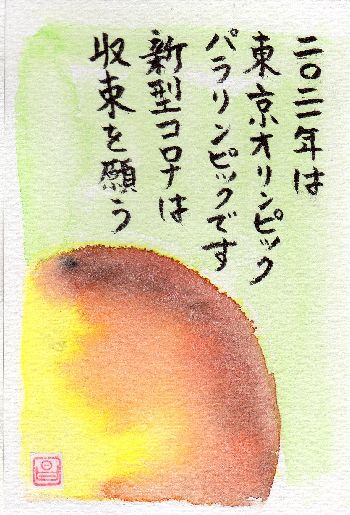 二〇二一年は
東京オリンピック
パラリンピックです
新型コロナは
収束を願う
昌